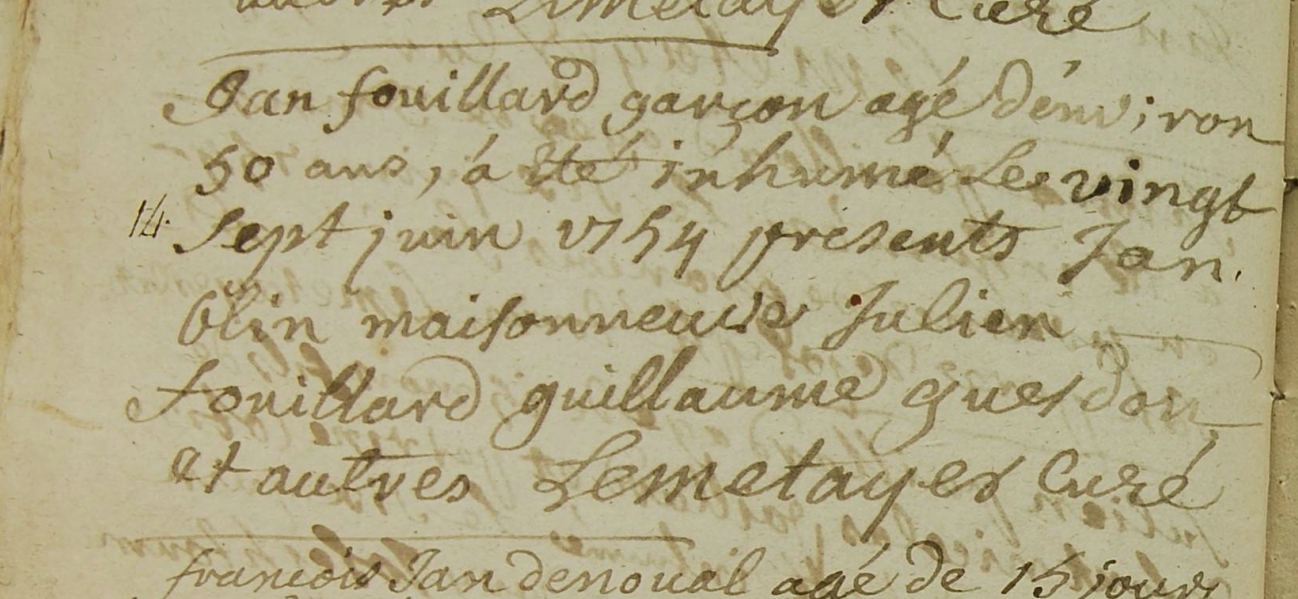 Lemetayer Curé
Jan fouillard garçon agé d'énviron
50 ans, á été inhumé Le vingt
14. Sept juin 1754 présents Jan
blin maisonneuve Julien
fouillard guillaume quesdon
et autres Lemetayer Curé
francois Jan denoual agé de 15 jours